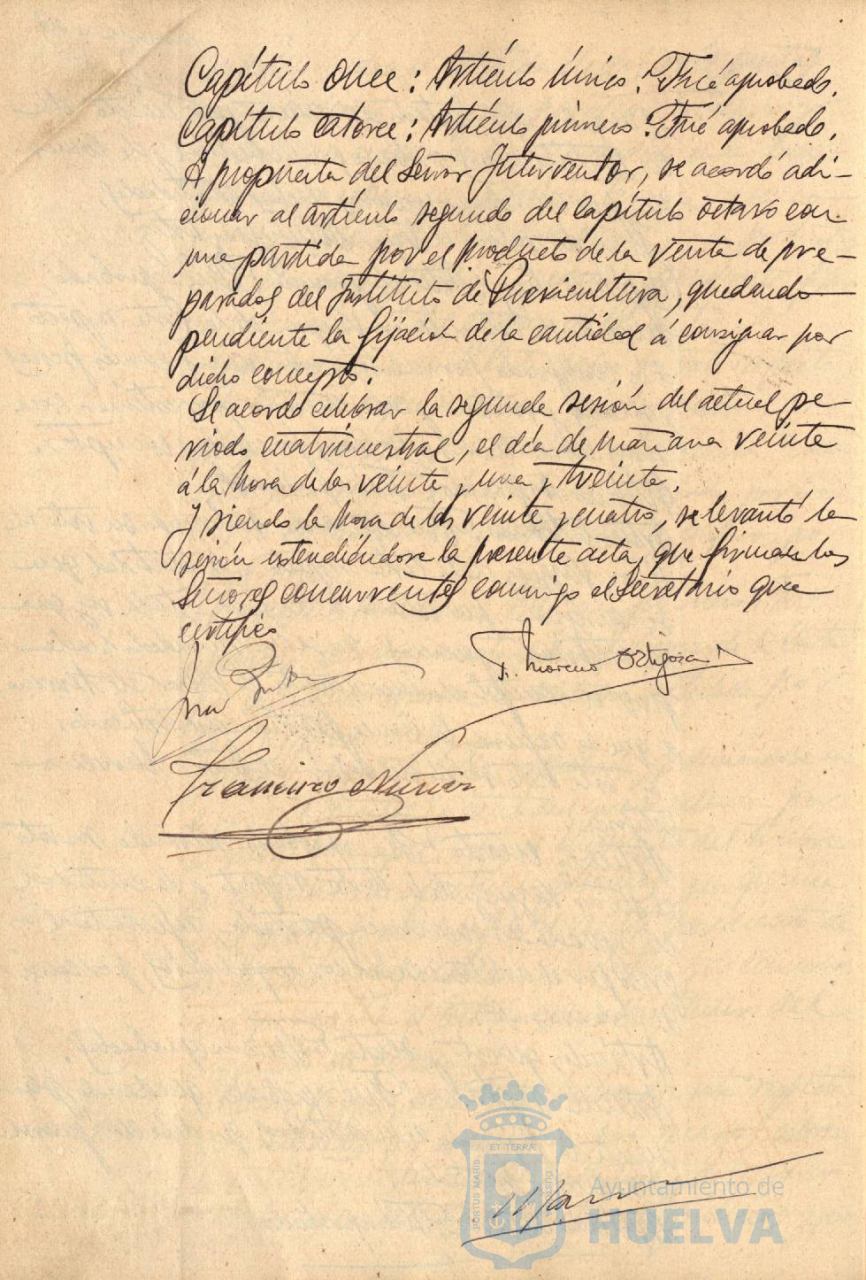 Capítulo Once: Artículo único: Fué aprobado.
Capítulo Catorce: Artículo primero: Fué aprobado.
A propuesta del Señor Interventor, se acordó adi-
cionar al artículo segundo del capítulo octavo con
una partida por el producto de la venta de pre-
parados del Instituto de Puericultura, quedando
pendiente la fijación de la cantidad á consignar por
dicho concepto.
Se acordó celebrar la segunda sesión del actual pe-
riodo cuatrimestral, el día de mañana veinte
á la hora de las veinte y una y treinta.
Y siendo la hora de las veinte y cuatro, se levantó la
sesión extendiéndose la presente acta, que firman los
Señores concurrentes conmigo el Secretario que
certifico
F. Moreno Ortigosa
Francisco Núñez
ET TERRÆ
PORTUS MARIS
Ayuntamiento de
HUELVA